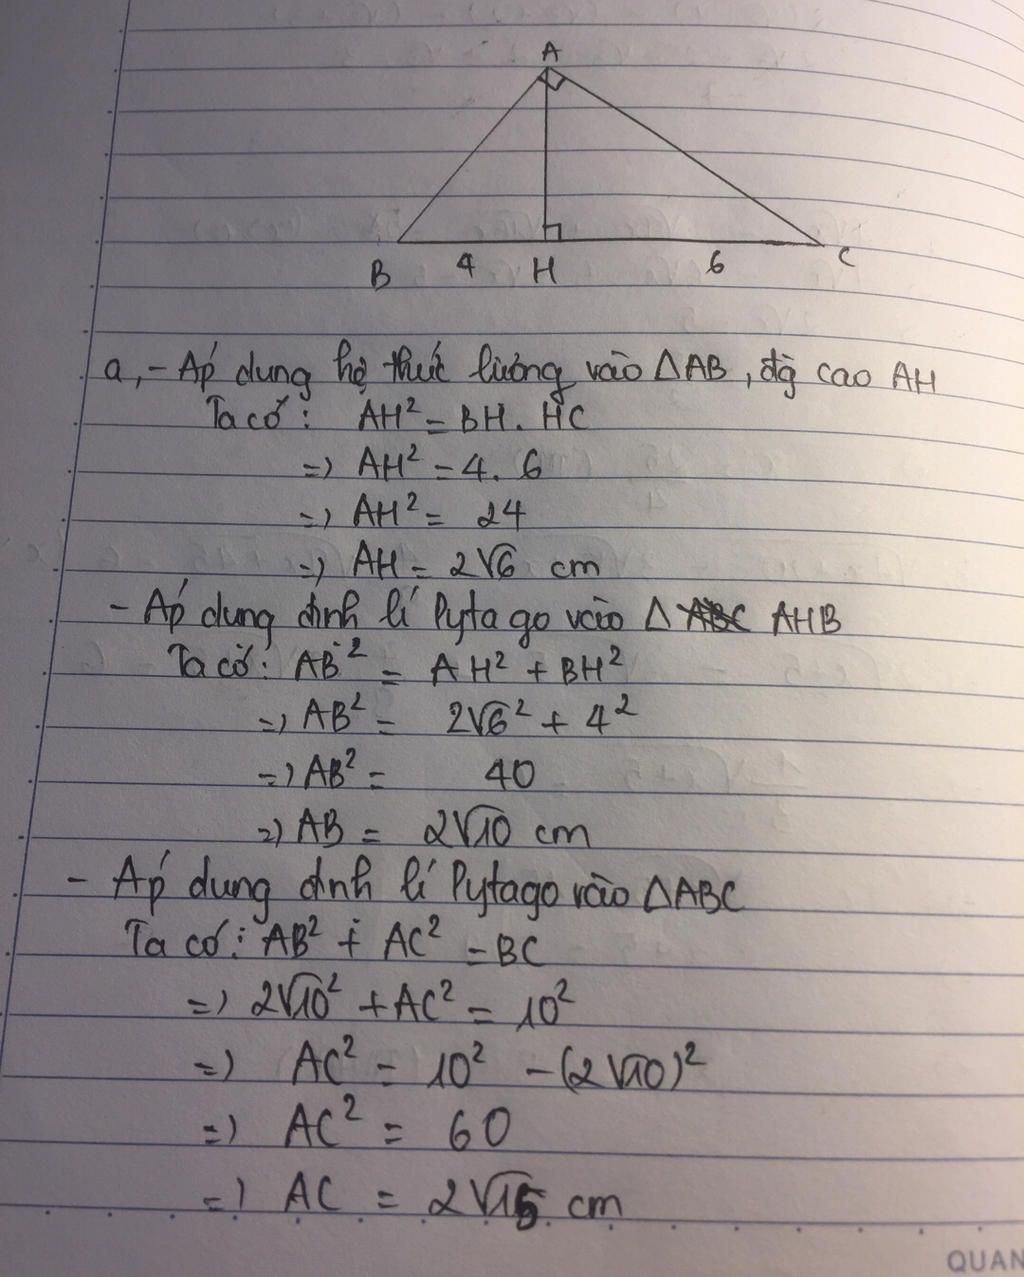 A
B 4 H 6 C
a, - Áp dung hệ thức lương vào ΔAB, đg cao AH
Ta có: AH² = BH. HC
=> AH² = 4. 6
=> AH² = 24
=> AH = 2√6 cm
- Áp dung đinh lí Pytago vào Δ AHB
Ta có: AB² = AH² + BH²
=> AB² = 2√6² + 4²
=> AB² = 40
=> AB = 2√10 cm
- Áp dung đinh lí Pytago vào ΔABC
Ta có: AB² + AC² = BC
=> 2√10² + AC² = 10²
=> AC² = 10² - (2√10)²
=> AC² = 60
=> AC = 2√15 cm
QUAN